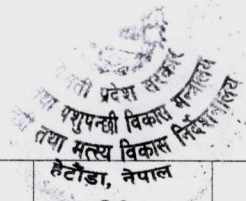 ती प्रदेश सरकार
पशुपन्छी विकास मन्त्रालय
तथा मत्स्य विकास निर्देशनालय
हेटौंडा, नेपाल